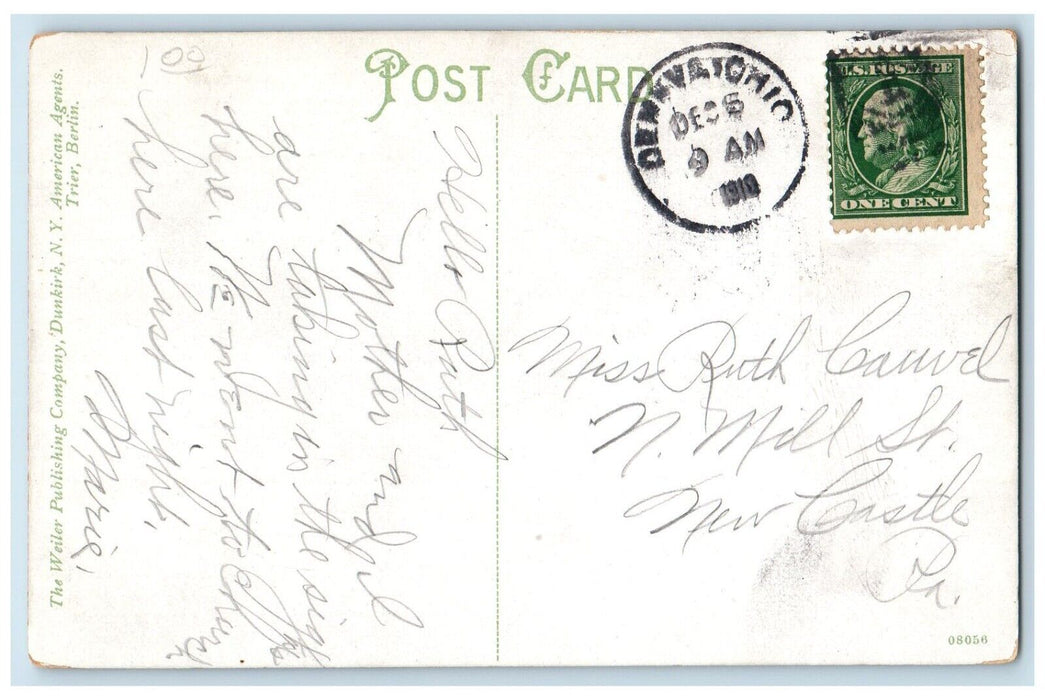 POST CARD
GENEVA, OHIO
DEC 5
9 AM
1910
U.S. POSTAGE
ONE CENT
Miss Ruth Cauvel
N. Mill St.
New Castle
Pa.
08056
Hello Ruth
Mother and I
are taking in the sights
here. We went to church
here last night.
Marie.
109
The Weiler Publishing Company, Dunkirk, N. Y. American Agents.
Trier, Berlin.